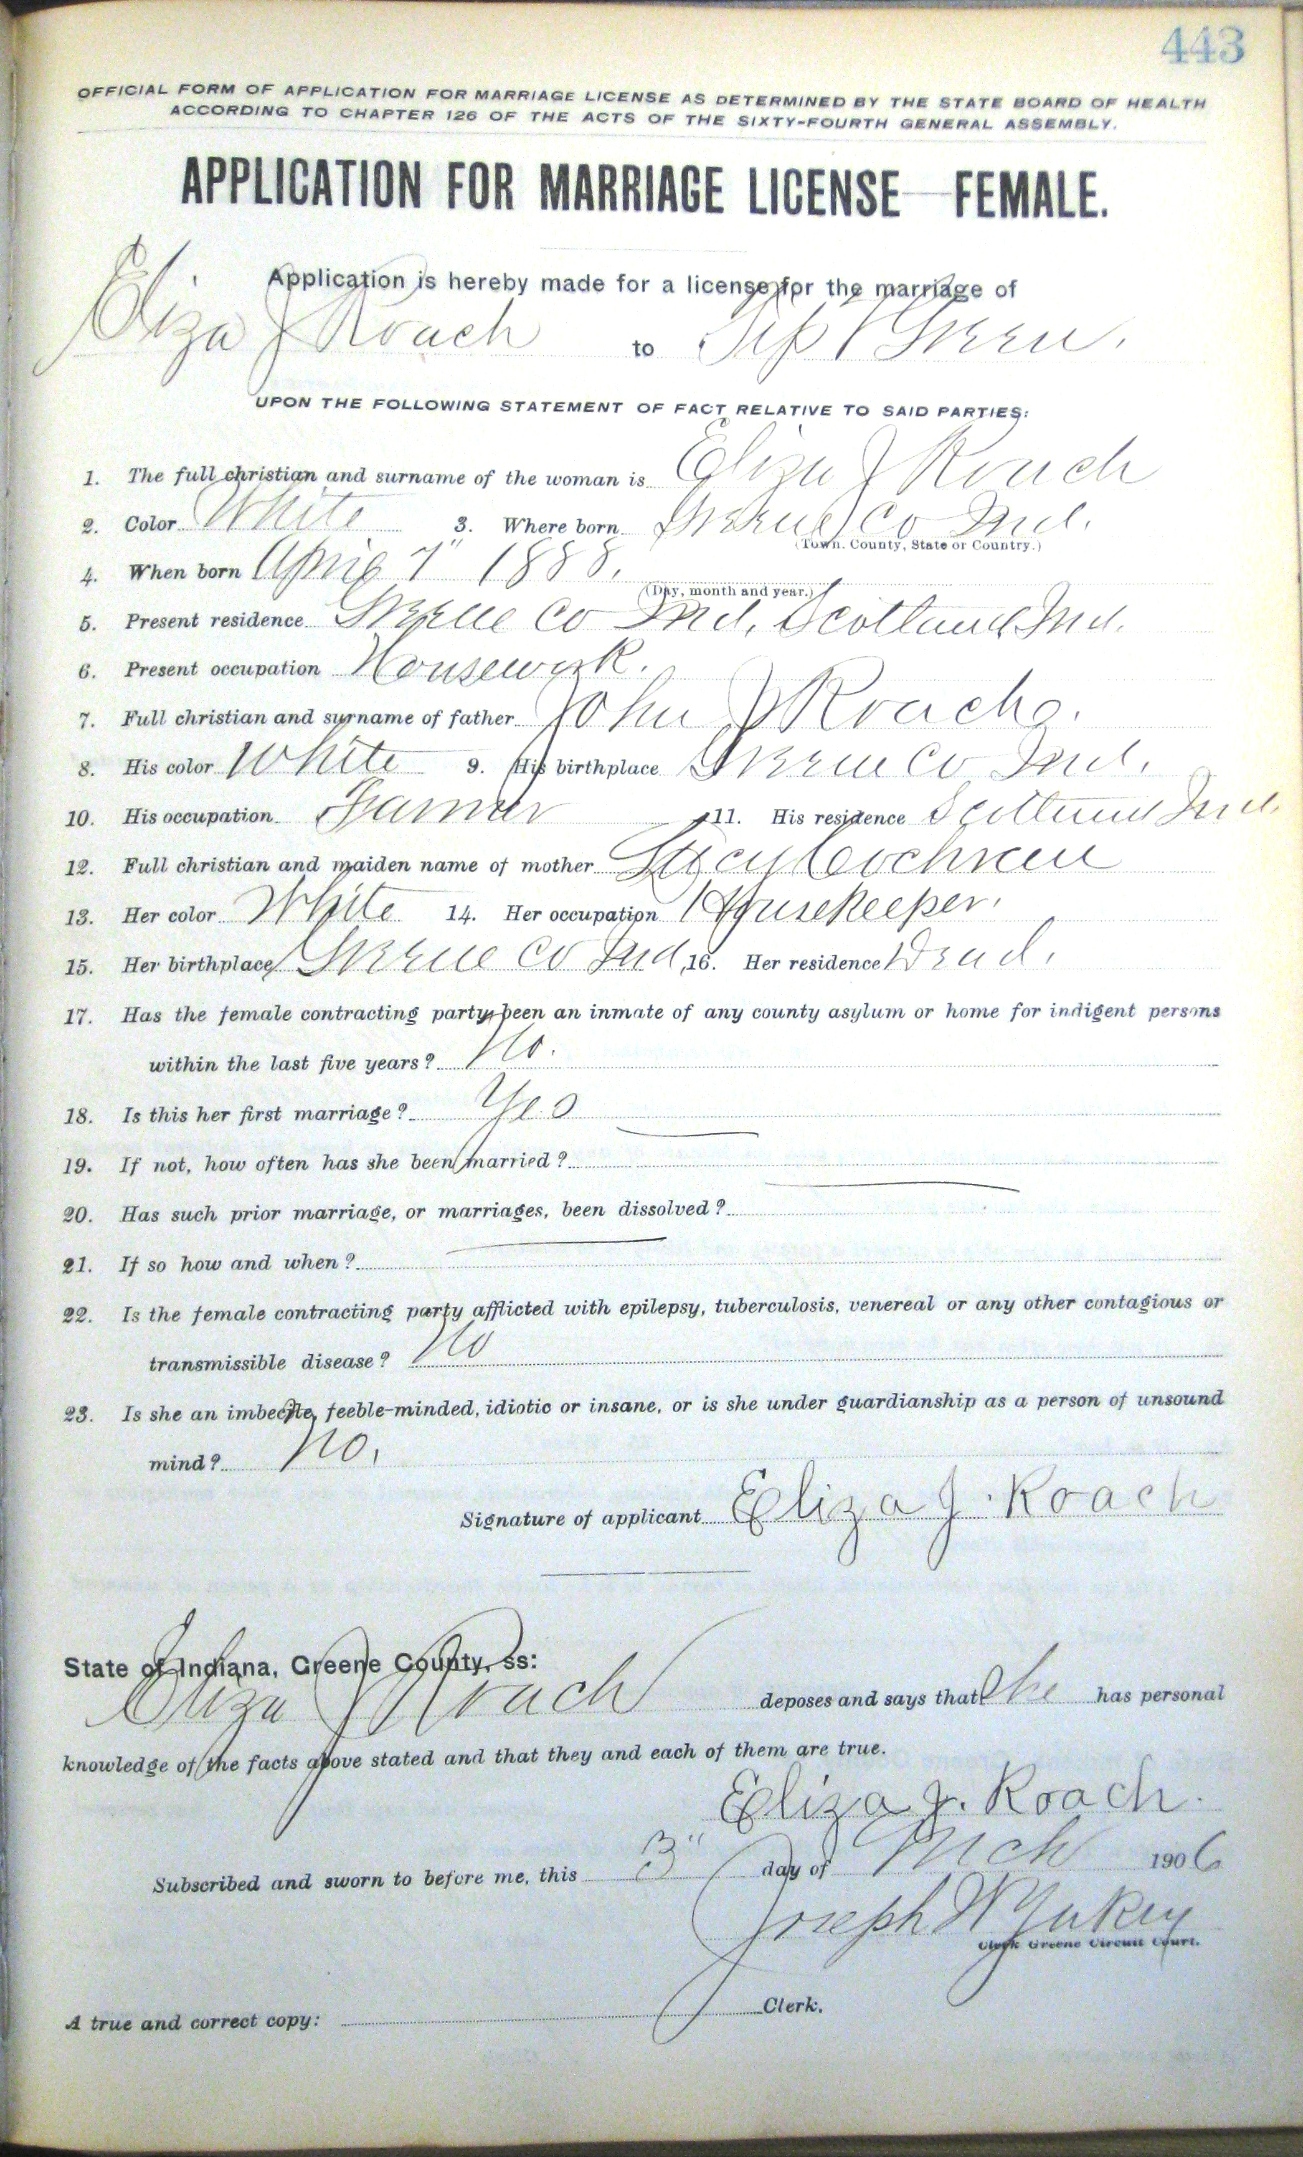 443
OFFICIAL FORM OF APPLICATION FOR MARRIAGE LICENSE AS DETERMINED BY THE STATE BOARD OF HEALTH
ACCORDING TO CHAPTER 126 OF THE ACTS OF THE SIXTY-FOURTH GENERAL ASSEMBLY.
APPLICATION FOR MARRIAGE LICENSE—FEMALE.
Application is hereby made for a license for the marriage of
Eliza J Roach to Green.
UPON THE FOLLOWING STATEMENT OF FACT RELATIVE TO SAID PARTIES:
1. The full christian and surname of the woman is Eliza J Roach
2. Color White 3. Where born Greene Co Ind.
(Town. County, State or Country.)
4. When born April 7" 1888.
(Day, month and year.)
5. Present residence Greene Co Ind. Scotland Ind.
6. Present occupation Housework.
7. Full christian and surname of father John J Roach.
8. His color White 9. His birthplace Greene Co Ind.
10. His occupation Farmer 11. His residence Scotland Ind.
12. Full christian and maiden name of mother Cochran
13. Her color White 14. Her occupation Housekeeper.
15. Her birthplace Greene Co Ind. 16. Her residence Dead.
17. Has the female contracting party been an inmate of any county asylum or home for indigent persons
within the last five years? No.
18. Is this her first marriage? Yes
19. If not, how often has she been married?
20. Has such prior marriage, or marriages, been dissolved?
21. If so how and when?
22. Is the female contracting party afflicted with epilepsy, tuberculosis, venereal or any other contagious or
transmissible disease? No
23. Is she an imbecile, feeble-minded, idiotic or insane, or is she under guardianship as a person of unsound
mind? No.
Signature of applicant Eliza J. Roach
State of Indiana, Greene County, ss:
Eliza J Roach deposes and says that she has personal
knowledge of the facts above stated and that they and each of them are true.
Eliza J. Roach.
Subscribed and sworn to before me, this 3" day of Mch 1906
Joseph W Yakey
Clerk Greene Circuit Court.
A true and correct copy: Clerk.